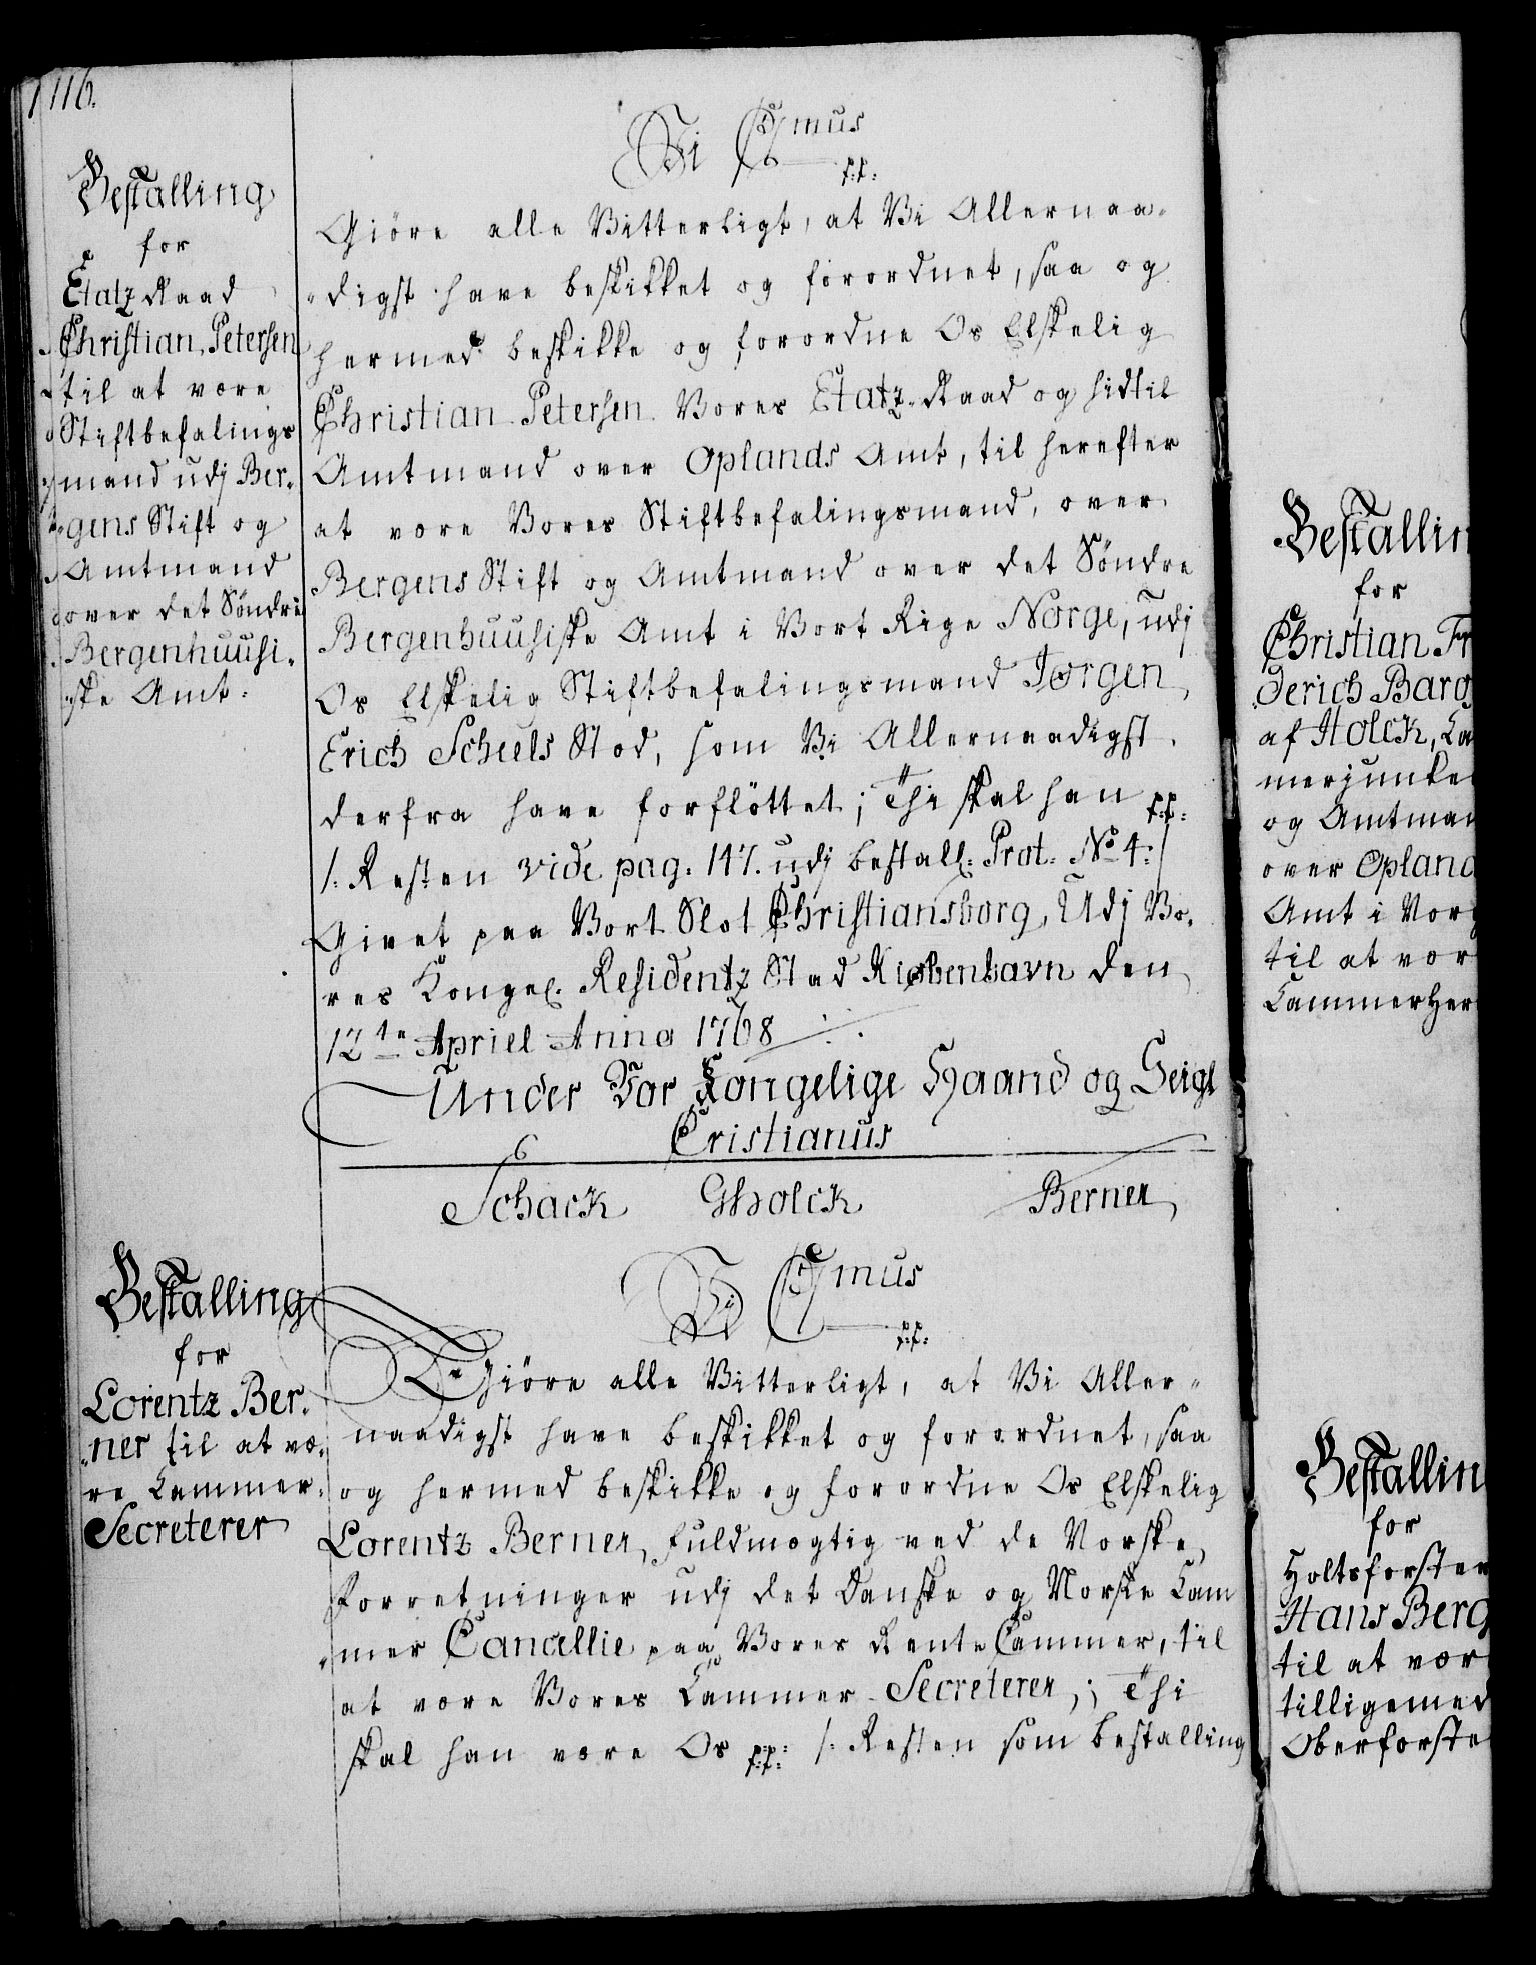 116.
Bestalling
for
Etatz Raad
Christian Petersen
til at være
Stiftbefalings
mand udj Ber-
gens Stift og
Amtmand
over det Søndre
Bergenhuusi-
ske Amt:
Vi C7mus
p:p:
Giöre alle Vitterligt, at Vi Allernaa-
digst have beskikket og forordnet, saa og
hermed beskikke og forordne Os Elskelig
Christian Petersen Vores Etatz-Raad og hidtil
Amtmand over Oplands Amt, til herefter
at være Vores Stiftbefalingsmand, over
Bergens Stift og Amtmand over det Söndre
Bergenhuusiske Amt i Vort Rige Norge, udj
Os Elskelig Stiftbefalingsmand Jørgen
Erich Scheels Stæd, som Vi Allernaadigst
derfra have forflöttet; Thi skal han p:p:
/: Resten vide pag: 147. udj bestall: Prot: No 4:/
Givet paa Vort Slot Christiansborg, Udj Vo-
res Kongel: Residentz Stad Kiøbenhavn den
12te Apriel Anno 1768
Under Vor Kongelige Haand og Seigl
Cristianus
Schack GHolck Berner
Bestalling
for
Lorentz Ber-
ner til at væ-
re Cammer-
Secreterer
Vi C7mus
p:p:
Giöre alle Vitterligt, at Vi Aller-
naadigst have beskikket og forordnet, saa
og hermed beskikke og forordne Os Elskelig
Lorentz Berner, Fuldmægtig ved de Norske
Forretninger udj det Danske og Norske Cam
mer Cancellie paa Vores Rente Cammer, til
at være Vores Cammer-Secreterer; Thi
skal han være Os p:p: /: Resten som bestalling
Bestallin
for
Christian Fr
derich Baro
af Holck, Ca
merjunke
og Amtman
over Opland
Amt i Norg
til at vær
Cammerher
Bestallin
for
Holtsforster
Hans Berg
til at vær
tilligemed
Oberforste